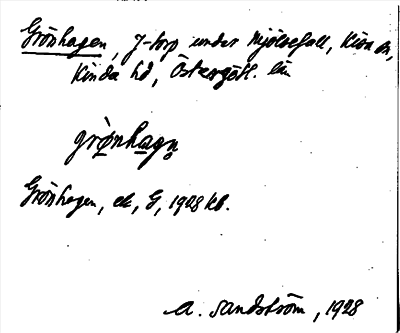 Grönhagen, J-torp under Mjölsefall, Kisa sn,
Kinda hd, Östergötl. län
grö̀nhagn̥
Grönhagen, ek, G, 1928 kb.
A. Sandström, 1928